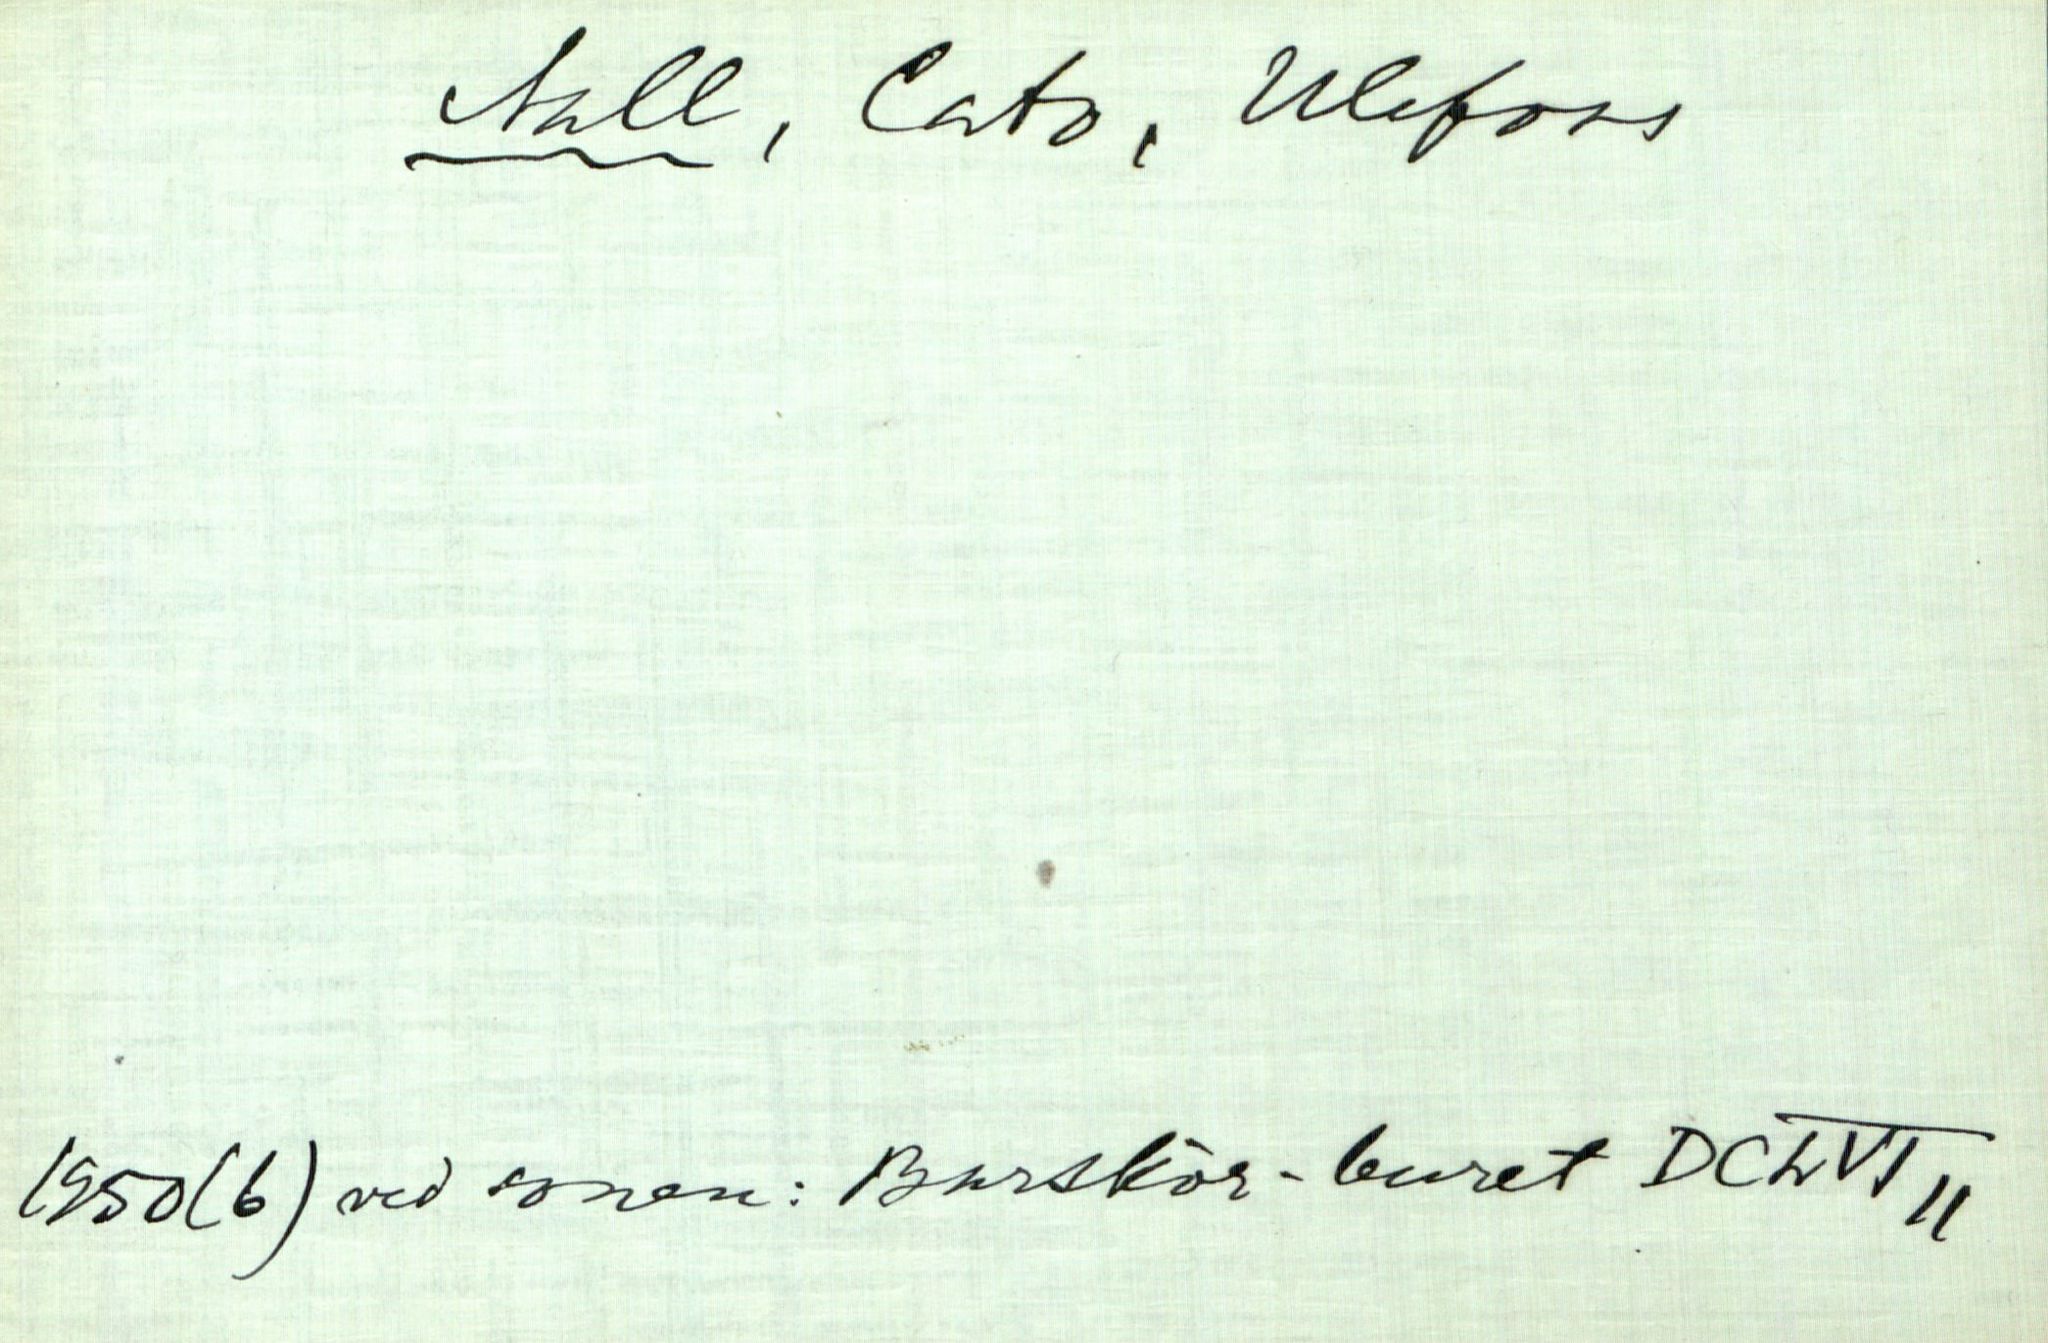 Aall, Cato, Ulefoss
1950(6) ved sonen: Burskör-buret DCLVI II